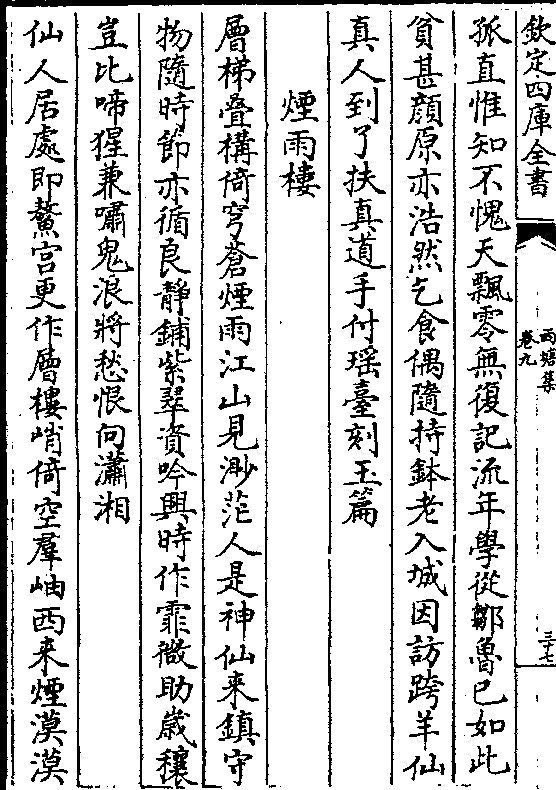 欽定四庫全書
西塘集
卷九
三十七
孤直惟知不愧天飄零無復記流年學從鄒魯已如此
貧甚顔原亦浩然乞食偶隨持鉢老入城因訪跨羊仙
真人到了扶真道手付瑶臺刻玉篇
煙雨樓
層梯疊構倚穹蒼煙雨江山見渺茫人是神仙来鎮守
物隨時節亦循良静鋪紫翠資吟興時作霏微助歲穰
豈比啼猩兼嘯鬼浪將愁恨向瀟湘
仙人居處即鰲宫更作層樓峭倚空羣岫西来煙漠漠